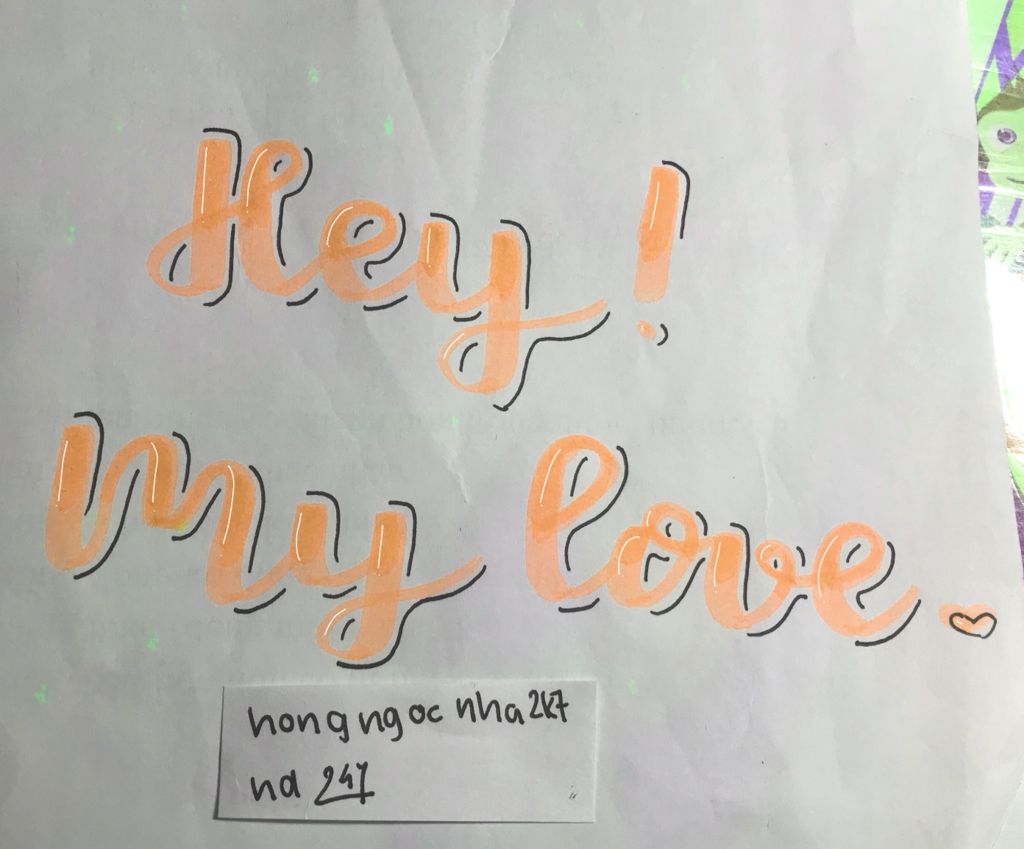 Hey!
My love.
hongngocnha2k7
nd 247